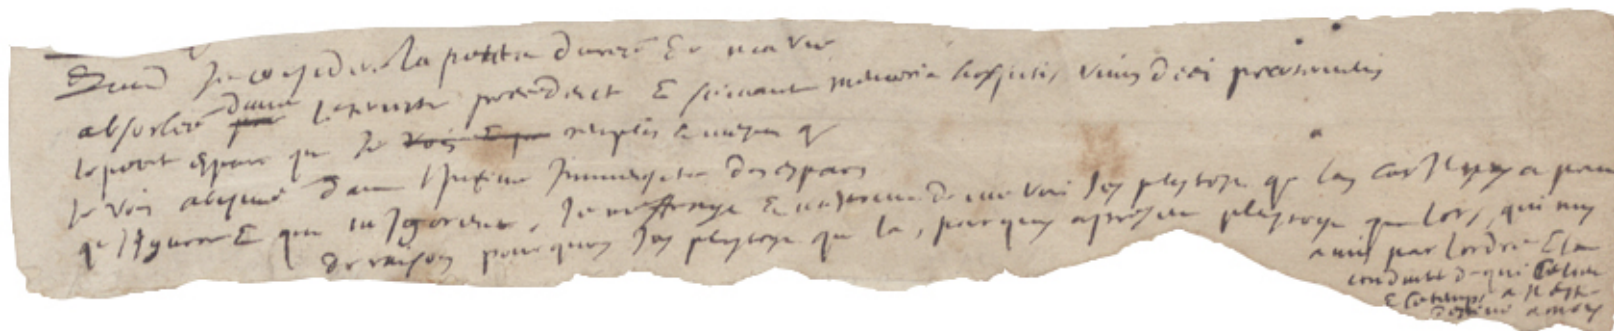 Quand Je considere la petite durée de ma vie
absorbée dans l'eternité precedente et suivante memoria hospitis unius diei praetereuntis
le petit espace que Je remplis et mesme que
Je vois abismé dans l'Infinie Immensité des espaces
que J'ignore et qui m'Ignorent, Je m'effraye et m'estonne de me voir Icy plustost que la car Il n'y a point
de raison pourquoy Icy plustost que la, pourquoy a present plustost que lors, qui m'y
a mis par l'ordre et la
conduitte de qui ce lieu
et ce temps a Il esté
destiné a moy